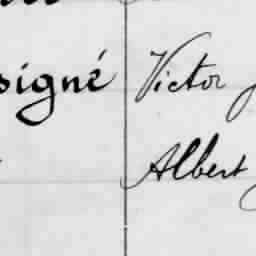 signé Victor
Albert